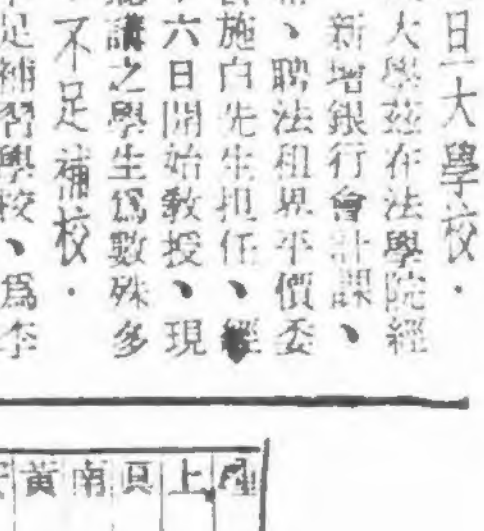 日一大學校．
大學茲在法學院經
新增銀行會計課、
、聘法租界平價委
施白先生担任、經
六日開始敎授、現
聽講之學生爲數殊多
不足補校．
足補習學校、爲李
上
南
黃